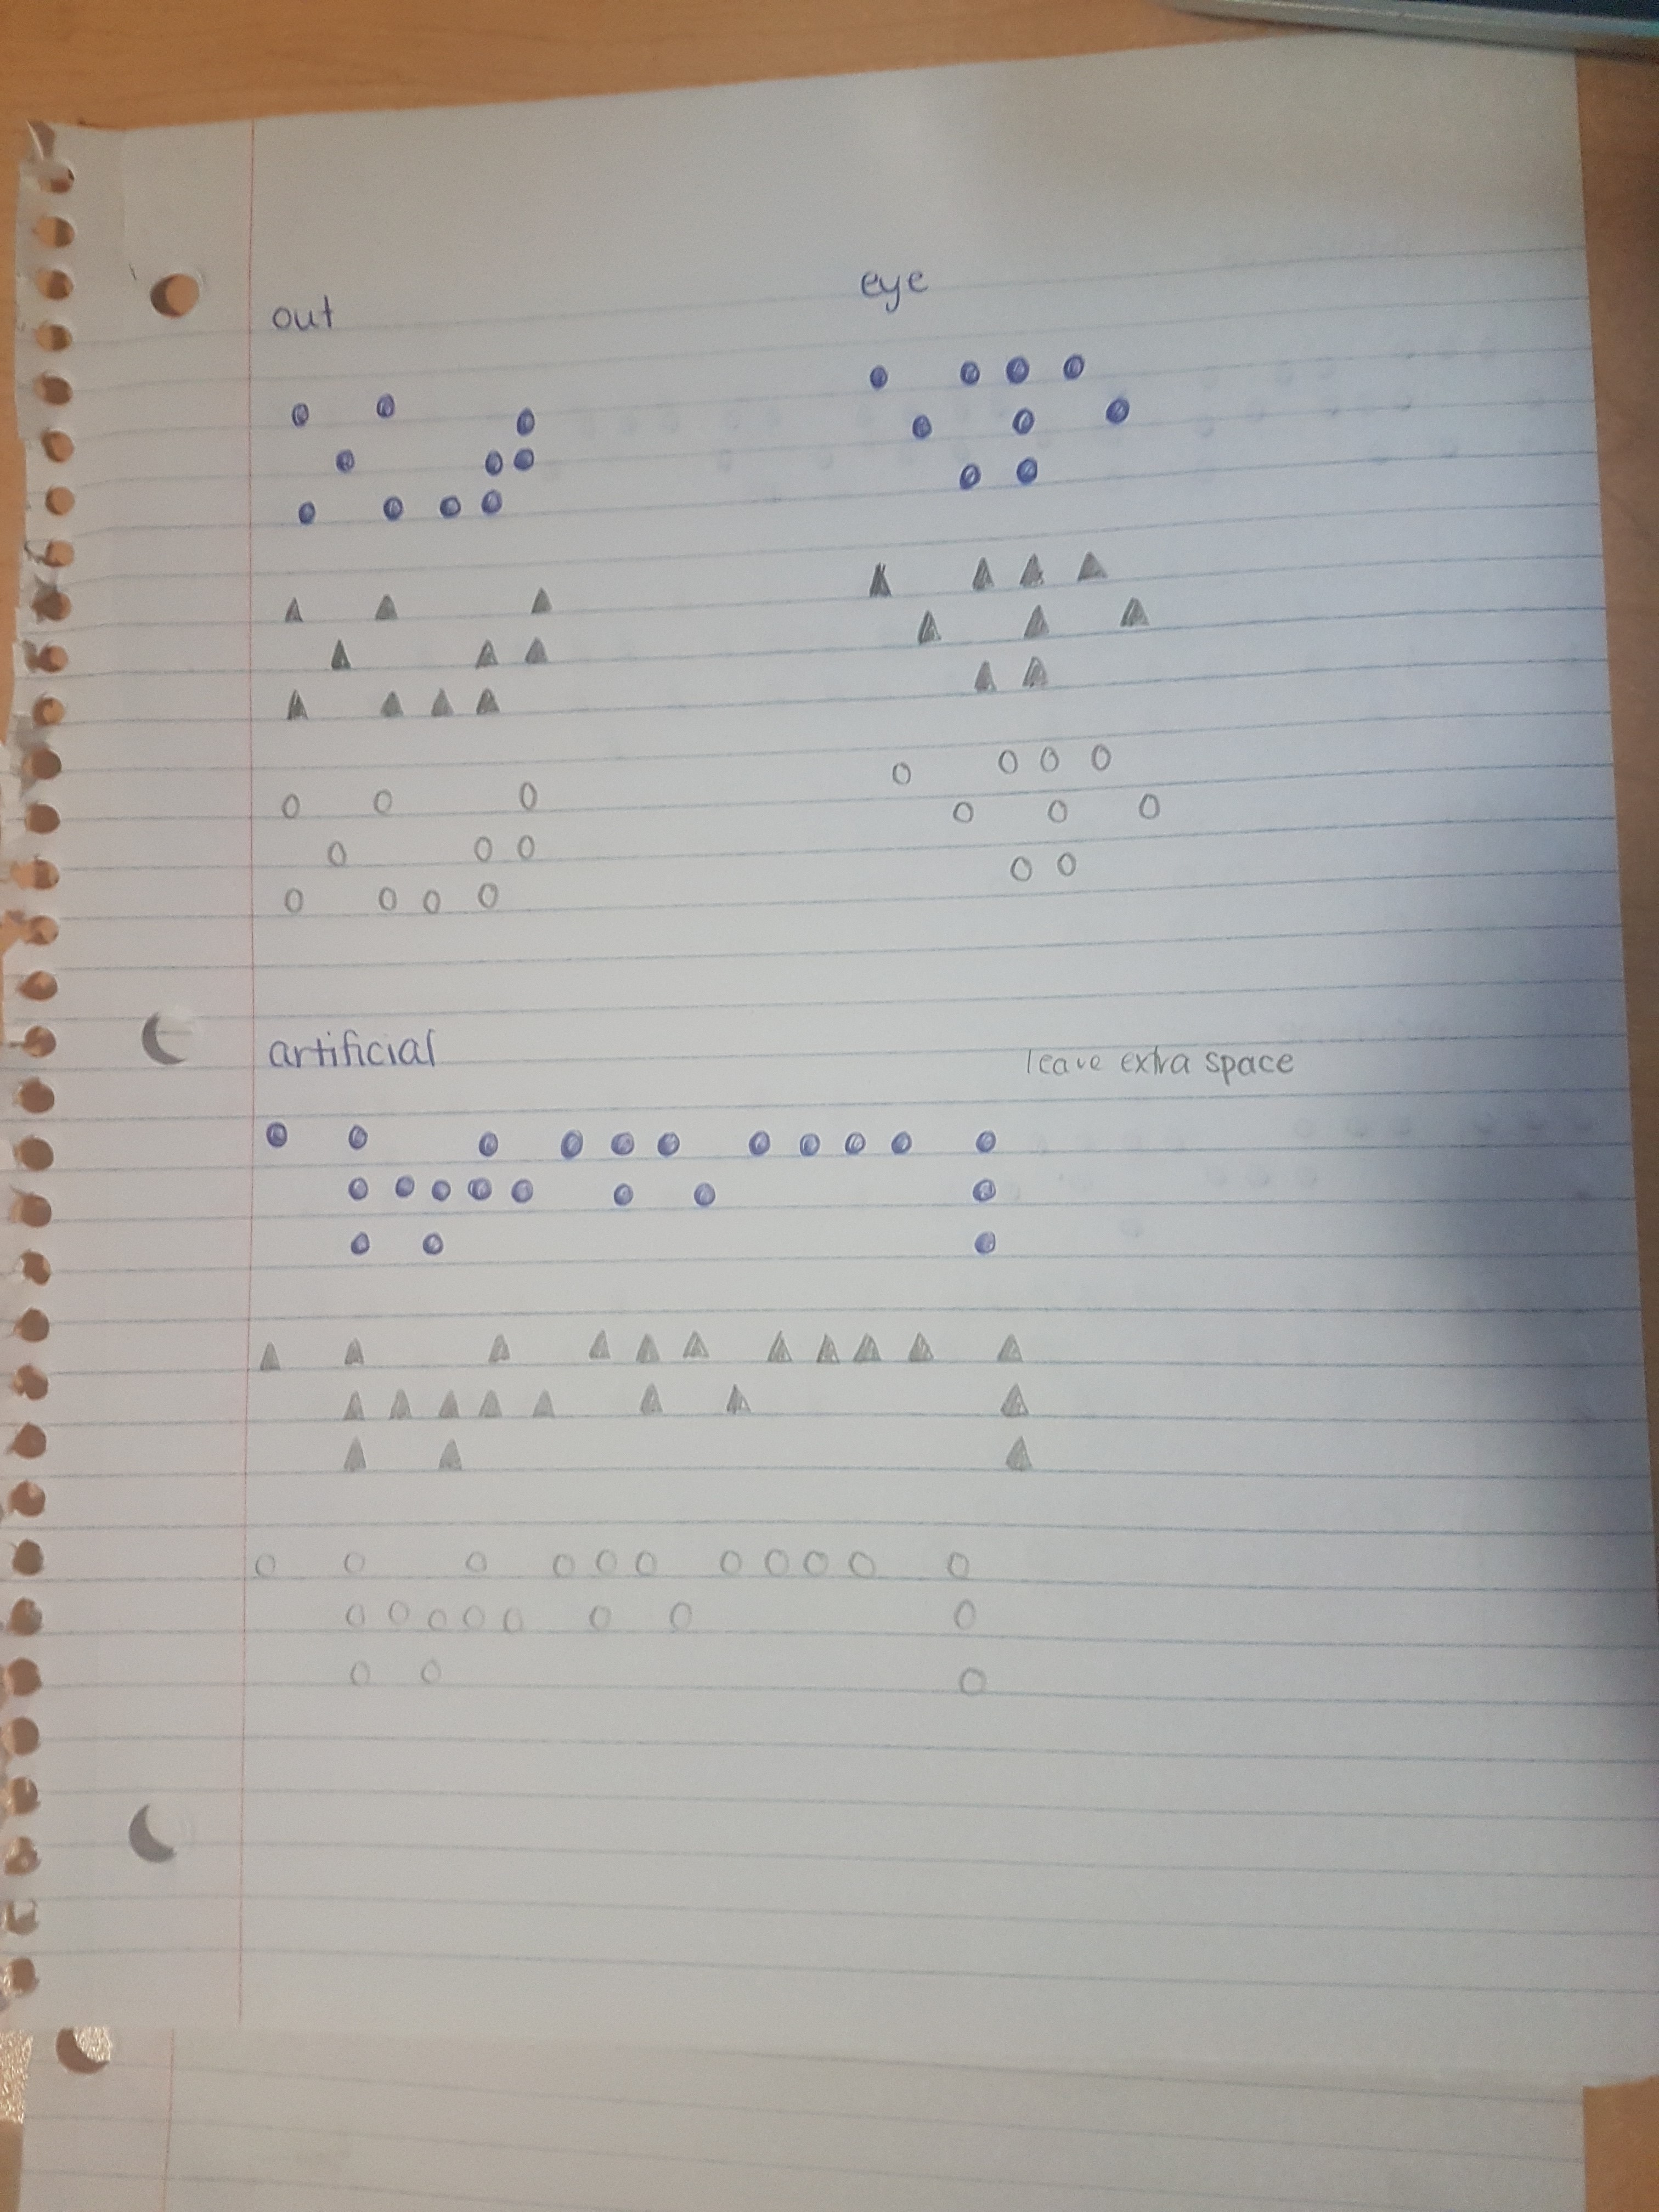 out
eye
⠕⠥⠞
⠑⠽⠑
⠕⠥⠞
⠑⠽⠑
⠕⠥⠞
⠑⠽⠑
artificial
leave extra space
⠁⠗⠞⠊⠋⠊⠉⠁⠇
⠁⠗⠞⠊⠋⠊⠉⠁⠇
⠁⠗⠞⠊⠋⠊⠉⠁⠇